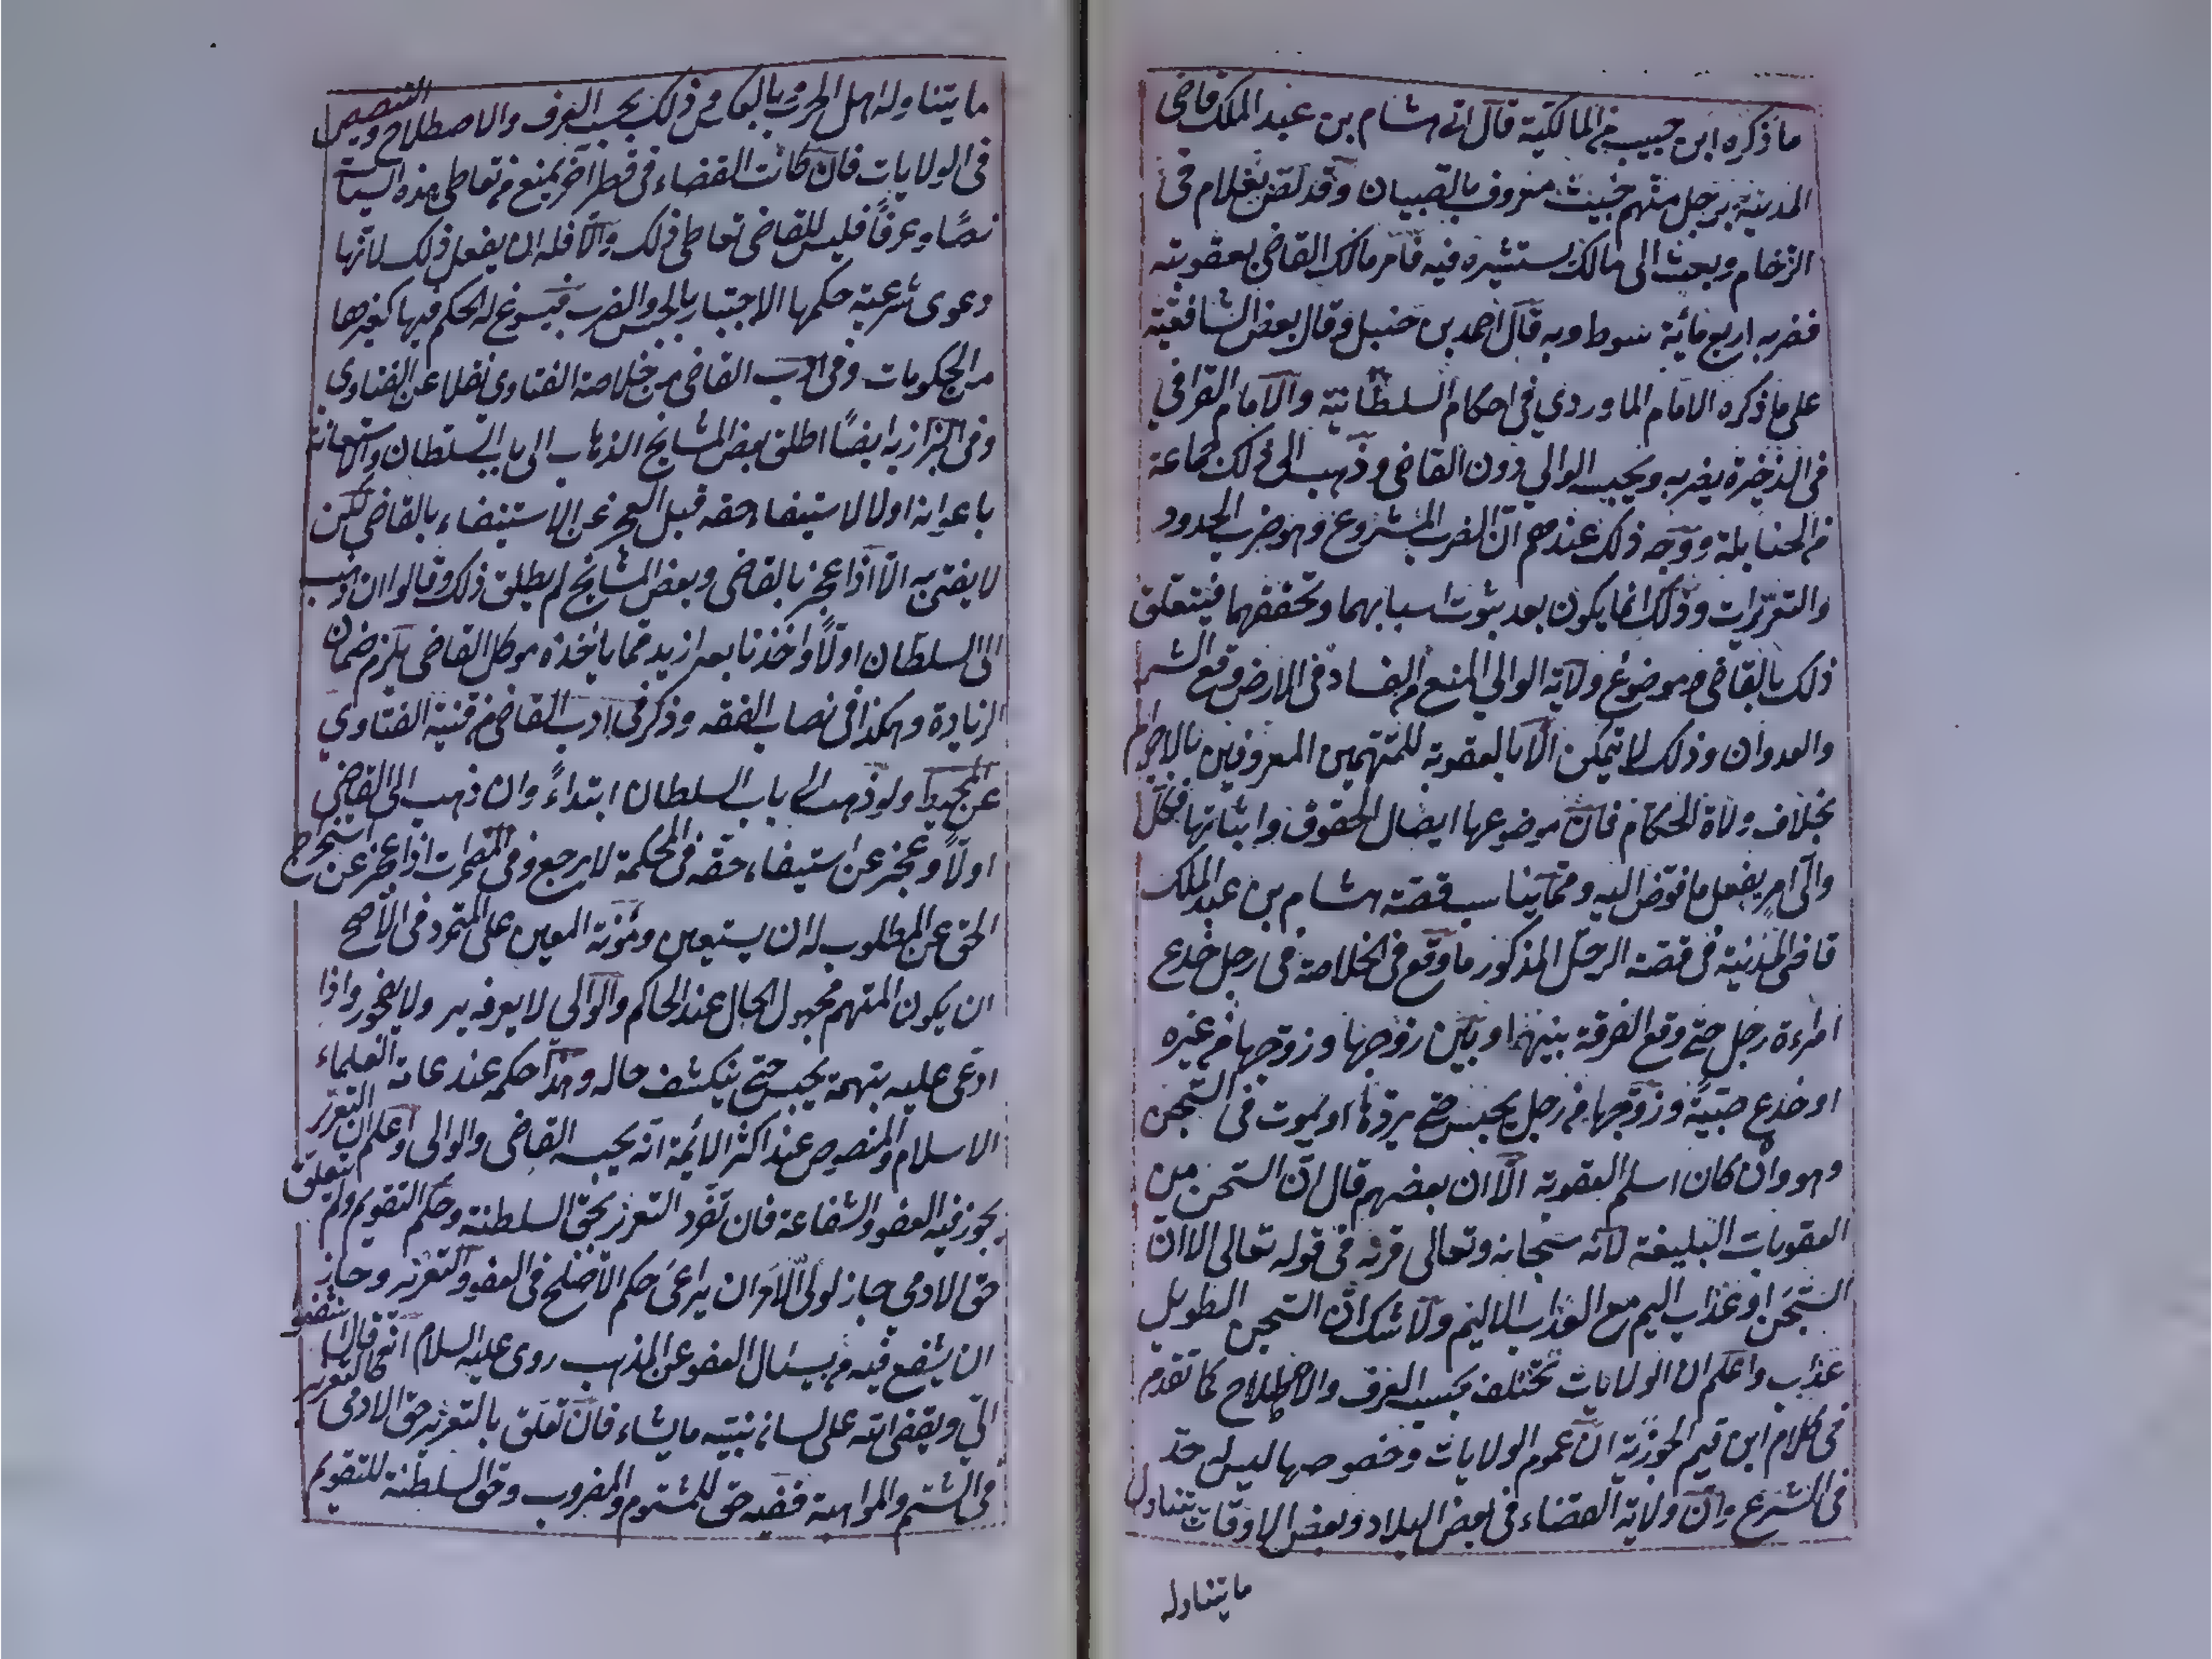 ما ذكره ابن حبيب من المالكية قال اتى هشام بن عبد الملك قاضى
المدينة برجل متهم خبيث معروف بالصبيان وقد لصق بغلام فى
الزخام وبعث الى مالك يستشيره فيه فامر مالك القاضى بعقوبته
فضربه اربع مائة سوط وبه قال احمد بن حنبل وقال بعض الشافعية
على ما ذكره الامام الماوردي فى احكام السلطانية والامام القرافي
فى الذخيرة يضربه ويحبسه الوالي دون القاضى وذهب الى ذلك جماعة
من الحنابلة ووجه ذلك عندهم ان الضرب المشروع وهو ضرب الحدود
والتعزيرات وذلك انما يكون بعد ثبوت اسبابهما وتحققهما فيتعلق
ذلك بالقاضى وموضوع ولاية الوالي المنع من الفساد فى الارض وقمع الشر
والعدوان وذلك لا يتمكن الا بالعقوبة للمتهمين المعروفين بالاجرام
بخلاف ولاة الحكام فان موضوعها ايصال الحقوق واثباتها فكل
والى امر يفعل ما فوض اليه ومما يناسب قصة هشام بن عبد الملك
قاضى المدينة فى قصة الرجل المذكور ما وقع فى الخلاصة فى رجل خدع
امراءة رجل حتى وقع الفرقة بينهما وبين زوجها وزوجها من غيره
او خدع صبية وزوجها من رجل يحبس حتى يردها او يموت فى السجن
وهو وان كان اسلم العقوبة الا ان بعضهم قال ان السجن من
العقوبات البليغة لانه سبحانه وتعالى قرنه فى قوله تعالى الا ان
السجن او عذاب اليم مع العذاب الاليم ولا شك ان السجن الطويل
عذاب واعلم ان الولايات تختلف بحسب العرف والاصطلاح كما تقدم
فى كلام ابن قيم الجوزية ان عموم الولايات وخصوصها ليس له حد
فى الشرع وان ولاية القضاء فى بعض البلاد وبعض الاوقات يتناول
ما يتناوله
ما يتناوله اهل الحرب وبالعكس فى ذلك بحسب العرف والاصطلاح والتنصيص
فى الولايات فان كانت القضاء فى قطر آخر يمنع من تعاطى هذه السياسة
نصًا وعرفًا فليس للقاضى تعاطى ذلك والا فله ان يفعل ذلك لانها
دعوى شرعية حكمها الاختبار بالحبس والضرب فيسوغ له الحكم فيها كغيرها
من الحكومات وفى ادب القاضى من خلاصة الفتاوى نقلا عن الفتاوى
وفى البزازية ايضًا اطلق بعض المشايخ الذهاب الى باب السلطان والاستعانة
باعوانه اولا لاستيفاء حقه قبل العجز عن الاستيفاء بالقاضى لكن
لا يفتى به الا اذا عجز بالقاضى وبعض المشايخ لم يطلق ذلك وقالوا ان ذهب
الى السلطان اولًا واخذنا بعه ازيد مما ياخذه موكل القاضى يلزم ضمان
الزيادة وهكذا فى نصاب الفقه وذكر فى ادب القاضى من قنية الفتاوي
عن المحيط ولو ذهب الى باب السلطان ابتداءً وان ذهب الى القاضى
اولًا وعجز عن استيفاء حقه فى المحكمة لا يرجع وفى المضمرات اذا عجز عن استخراج
الحق عن المطلوب له ان يستعين ومؤنة المعين على المتمرد فى الاصح
ان يكون المتهم مجهول الحال عند الحاكم والوالي لا يعرفه ببر ولا بفجور واذا
ادعى عليه بتهمة يحبس حتى ينكشف حاله وهذا حكمه عند عامة العلماء
الاسلام والمنصوص عند اكثر الائمة انه يحبسه القاضى والوالى واعلم ان التعزر
يجوز فيه العفو والشفاعة فان تفرد التعزير بحق السلطنة وحكم التقويم ولم يتعلق
حق الادمي جاز لولي الامر ان يراعى حكم الاصلح فى العفو والتعزير وجاز
ان يشفع فيه من يسال العفو عن المذنب روى عليه السلام انه قال اشفعوا
الي ويقضى الله على لسان نبيه ما يشاء فان تعلق بالتعزير حق الادمى كالتعزير
فى الشتم والمواثبة ففيه حق للمشتوم والمضروب وحق السلطنة للتقويم